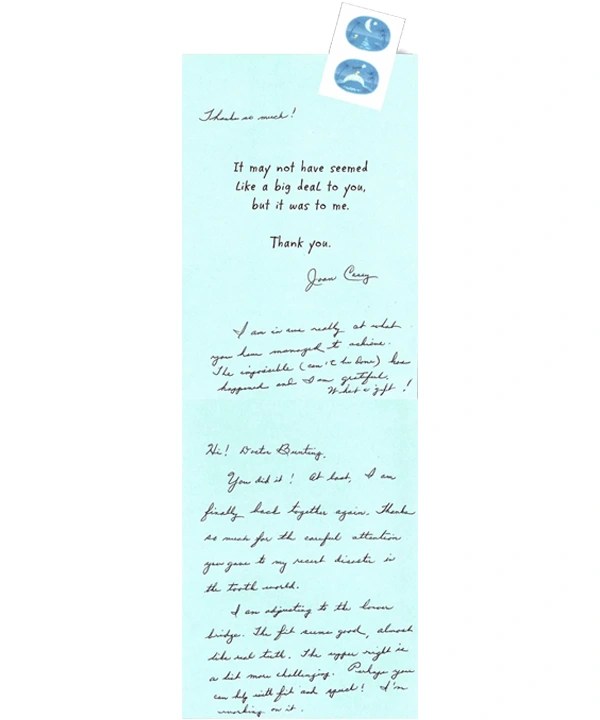 Thanks so much!
It may not have seemed
like a big deal to you,
but it was to me.
Thank you.
Joan Carey
I am in awe really at what
you have managed to achieve.
The impossible (can't be done) has
happened and I am grateful.
What a gift!
Hi! Doctor Bunting,
You did it! At last, I am
finally back together again. Thanks
so much for the careful attention
you gave to my recent disaster in
the tooth world.
I am adjusting to the lower
bridge. The fit seems good, almost
like real teeth. The upper right is
a bit more challenging. Perhaps you
can help with fit and speech! I'm
working on it.